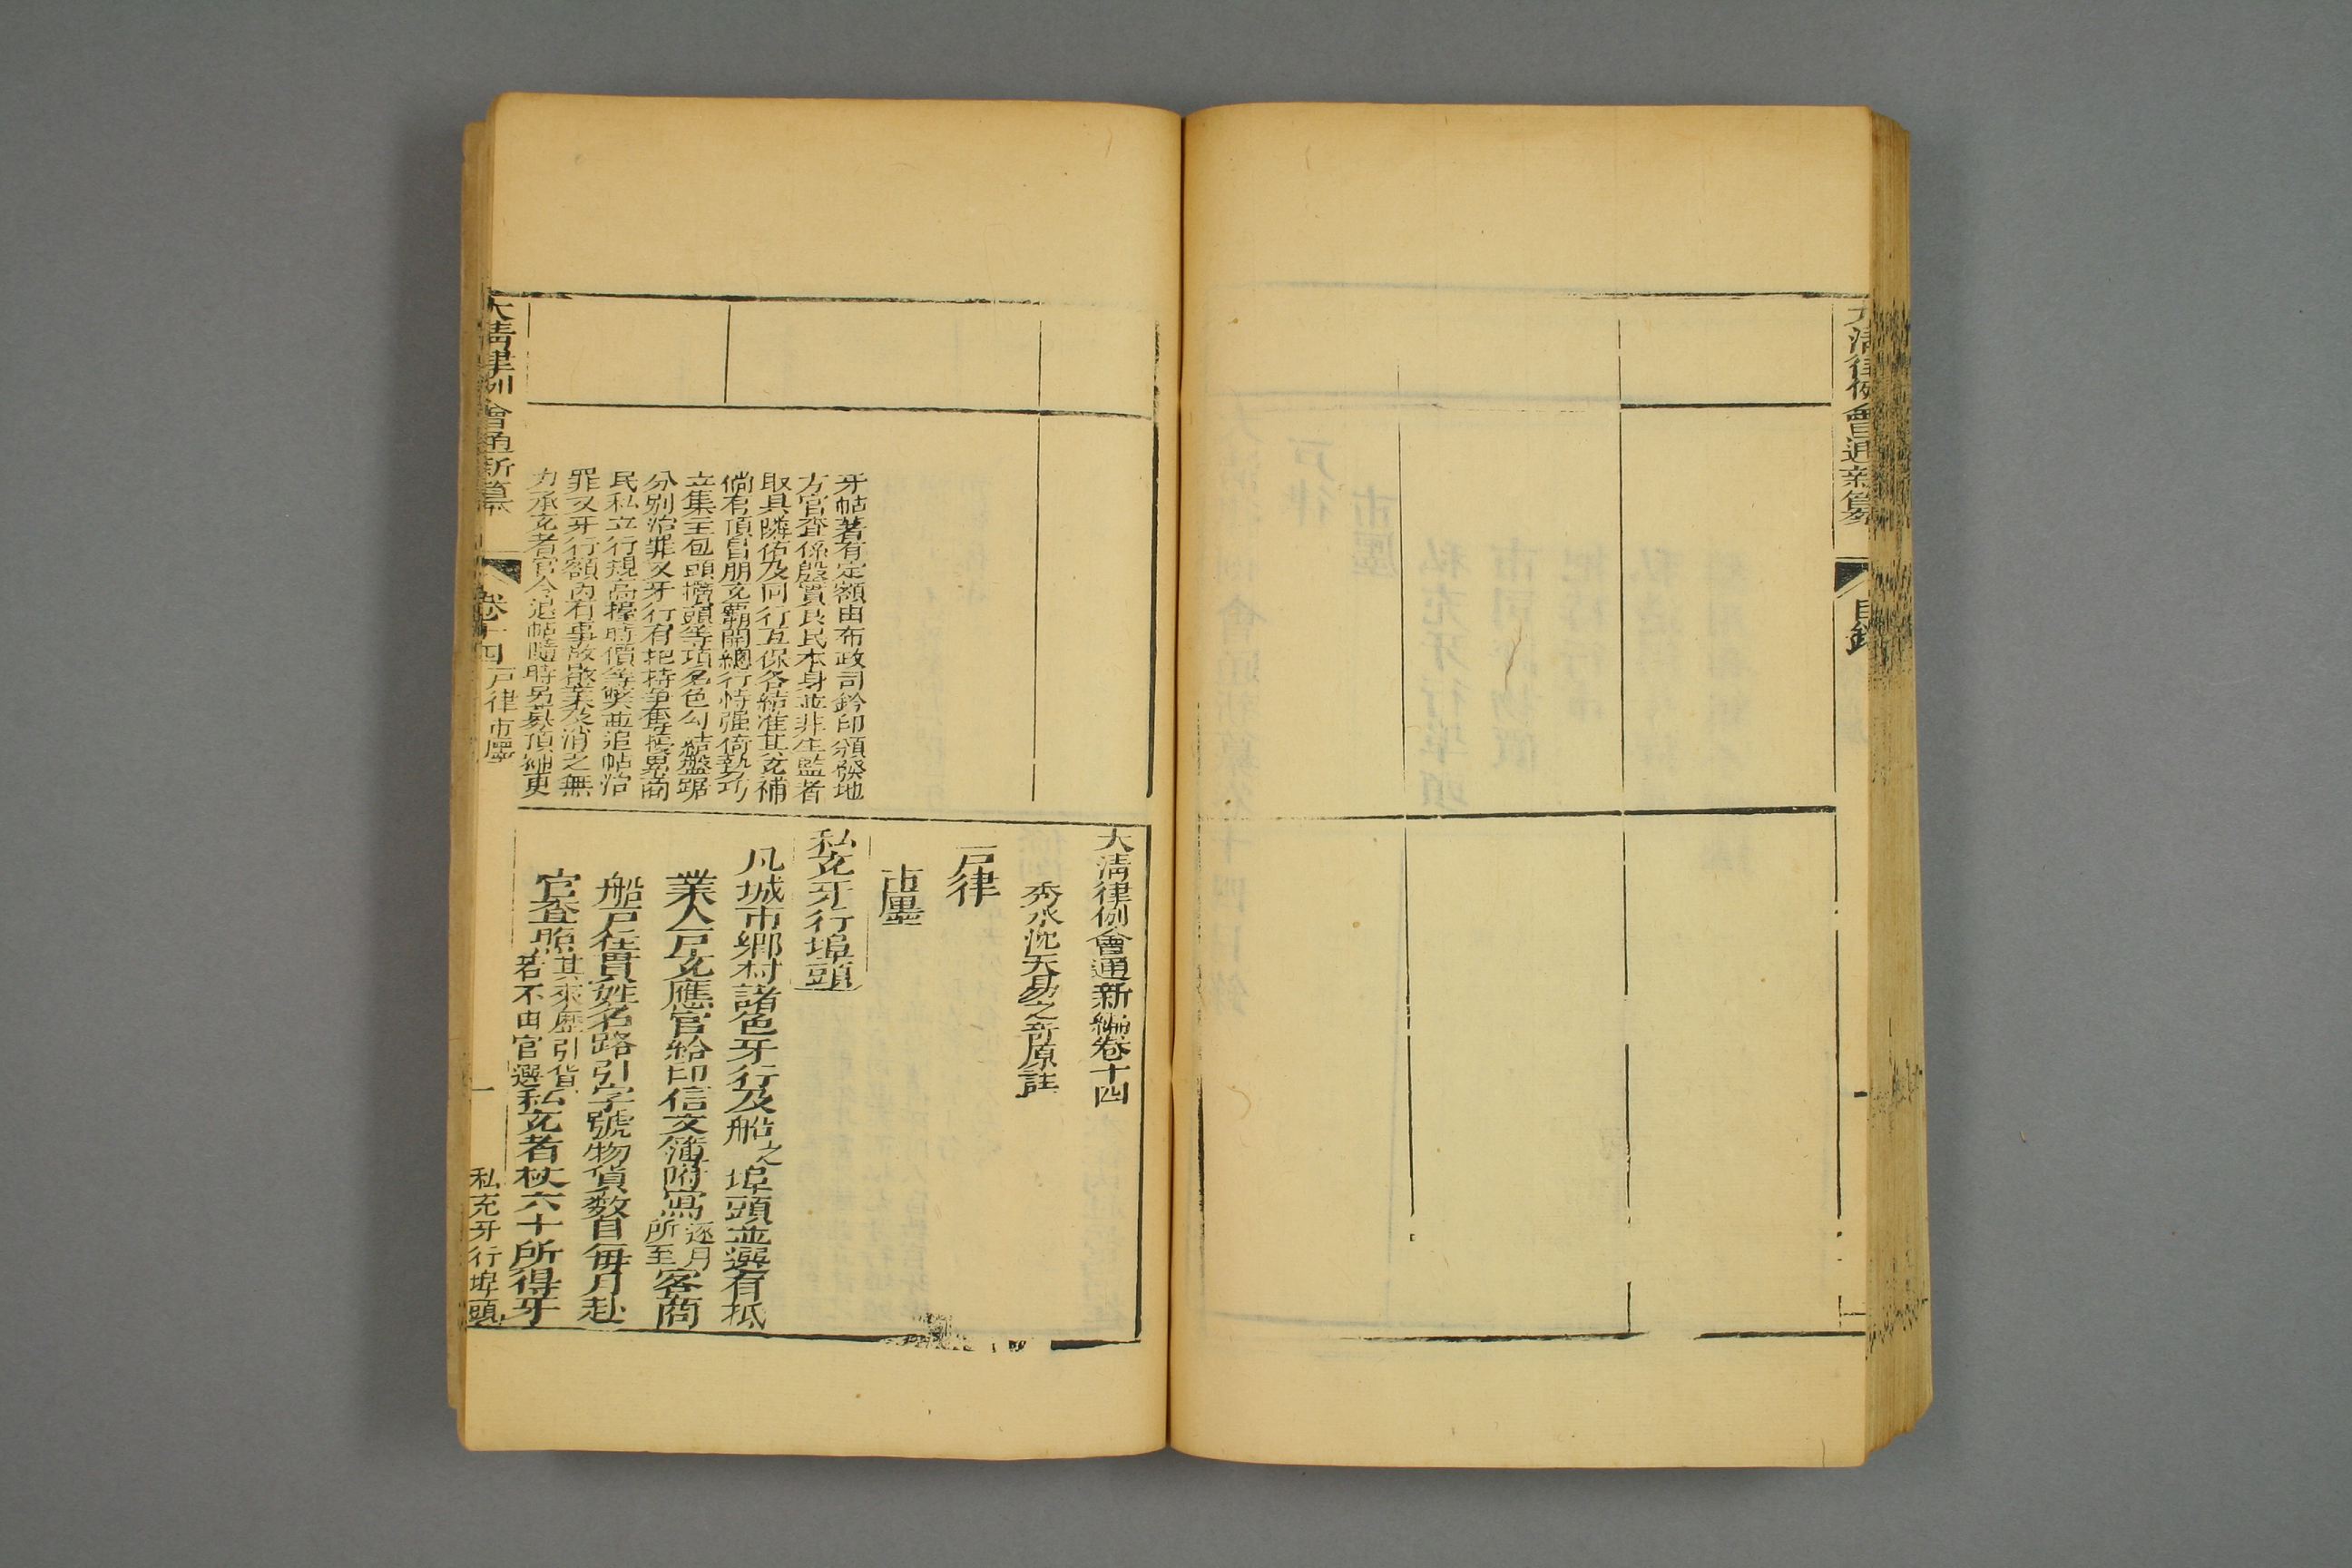 大清律例會通新纂
目錄
牙帖著有定額由布政司鈐印頒發地
方官查係殷實良民本身並非生監者
取具隣佑及同行互保各結准其充補
倘有頂冒朋充霸開總行恃强
立集主包頭攬頭等項名色勾結盤踞
分别治罪又牙行有把持爭奪拖累商
民私立行規高擡時價等弊並追帖治
罪又牙行額内有事故歇業及消乏無
力承充者官令退帖隨時另募頂補更
大清律例會通新編卷十四
秀水沈天易之奇原註
戶律
市廛
私充牙行埠頭
凡城市鄉村諸色牙行及船之埠頭並選有抵
業人戶充應官給印信文簿附寫逐月所至客商
船戶住貫姓名路引字號物貨數目每月赴
官查照其來歷引貨若不由官選私充者杖六十所得牙
大清律例會通新纂
卷十四
戶律市廛
一
私充牙行埠頭